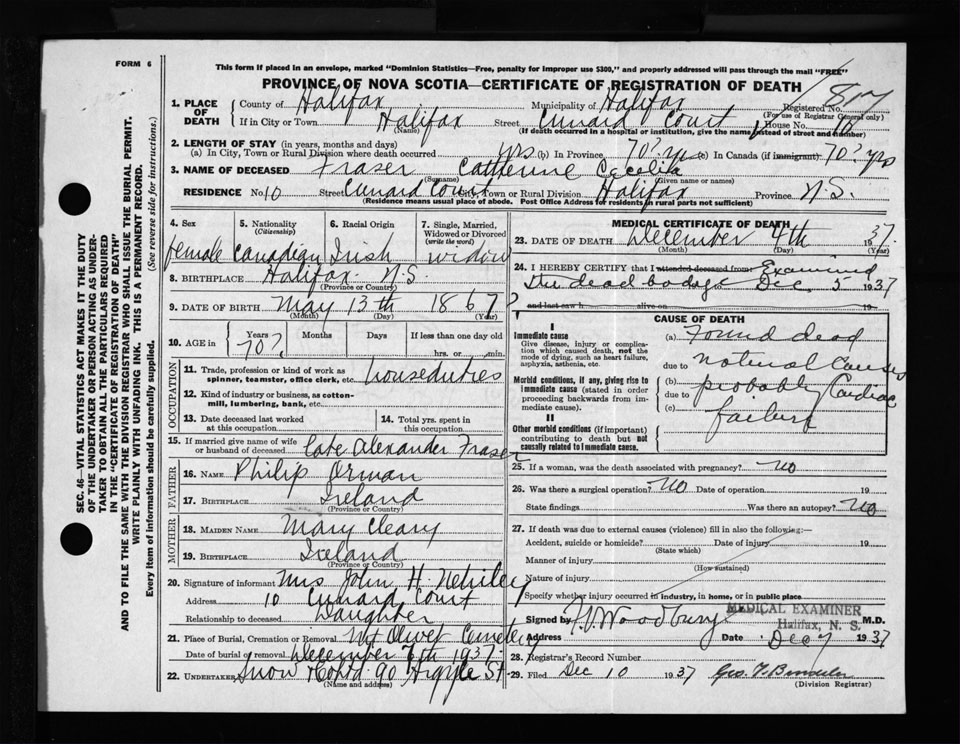 FORM 6
This form if placed in an envelope, marked "Dominion Statistics—Free, penalty for improper use $300," and properly addressed will pass through the mail "FREE"
PROVINCE OF NOVA SCOTIA—CERTIFICATE OF REGISTRATION OF DEATH
1. PLACE OF DEATH County of Halifax Municipality of Halifax Registered No.
(For use of Registrar General only)
If in City or Town Halifax Street Cunard Court House No. 10
(Name) (If death occurred in a hospital or institution, give the name instead of street and number)
2. LENGTH OF STAY (in years, months and days)
(a) In City, Town or Rural Division where death occurred yrs (b) In Province 70? yrs (c) In Canada (if immigrant) 70? yrs
3. NAME OF DECEASED Fraser Catherine Cecelia
(Surname) (Given name or names)
RESIDENCE No. 10 Street Cunard Court City, Town or Rural Division Halifax Province N.S.
(Residence means usual place of abode. Post Office Address for residents in rural parts not sufficient)
4. Sex 5. Nationality (Citizenship) 6. Racial Origin 7. Single, Married, Widowed or Divorced (write the word)
female Canadian Irish widow
8. BIRTHPLACE Halifax N.S.
(Province or Country)
9. DATE OF BIRTH May 13th 1867?
(Month) (Day) (Year)
10. AGE in Years Months Days If less than one day old
70? hrs. or min.
OCCUPATION
11. Trade, profession or kind of work as spinner, teamster, office clerk, etc. houseduties
12. Kind of industry or business, as cotton-mill, lumbering, bank, etc.
13. Date deceased last worked at this occupation
14. Total yrs. spent in this occupation
15. If married give name of wife or husband of deceased Late Alexander Fraser
FATHER
16. NAME Philip Orman
17. BIRTHPLACE Ireland
(Province or Country)
MOTHER
18. MAIDEN NAME Mary Cleary
19. BIRTHPLACE Ireland
(Province or Country)
20. Signature of informant Mrs John H.
Address 10 Cunard Court
Relationship to deceased Daughter
21. Place of Burial, Cremation or Removal Mt Olivet Cemetery
Date of burial or removal December 7th 1937
22. UNDERTAKER Snow & Co Ltd 90 Argyle St
(Name and address)
MEDICAL CERTIFICATE OF DEATH
23. DATE OF DEATH December 4th 1937
(Month) (Day) (Year)
24. I HEREBY CERTIFY that I attended deceased from: Examined
the dead body Dec. 5 1937
and last saw h alive on 19
CAUSE OF DEATH
I
Immediate cause
Give disease, injury or complication which caused death, not the mode of dying, such as heart failure, asphyxia, asthenia, etc.
Morbid conditions, if any, giving rise to immediate cause (stated in order proceeding backwards from immediate cause).
II
Other morbid conditions (if important) contributing to death but not causally related to immediate cause.
(a) Found dead
due to natural causes
(b) probably Cardiac
due to
(c) failure
25. If a woman, was the death associated with pregnancy? No
26. Was there a surgical operation? No Date of operation 19
State findings Was there an autopsy? No
27. If death was due to external causes (violence) fill in also the following:—
Accident, suicide or homicide? Date of injury 19
(State which)
Manner of injury
(How sustained)
Nature of injury
Specify whether injury occurred in industry, in home, or in public place
MEDICAL EXAMINER
Signed by Woodbury Halifax, N. S. M.D.
Address Date Dec 7 1937
28. Registrar's Record Number
29. Filed Dec 10 1937 Geo.
(Division Registrar)
SEC. 46—VITAL STATISTICS ACT MAKES IT THE DUTY
OF THE UNDERTAKER OR PERSON ACTING AS UNDER-
TAKER TO OBTAIN ALL THE PARTICULARS REQUIRED
IN THE "CERTIFICATE OF REGISTRATION OF DEATH"
AND TO FILE THE SAME WITH THE DIVISION REGISTRAR WHO SHALL ISSUE THE BURIAL PERMIT.
WRITE PLAINLY WITH UNFADING INK. THIS IS A PERMANENT RECORD.
Every item of information should be carefully supplied. (See reverse side for instructions.)